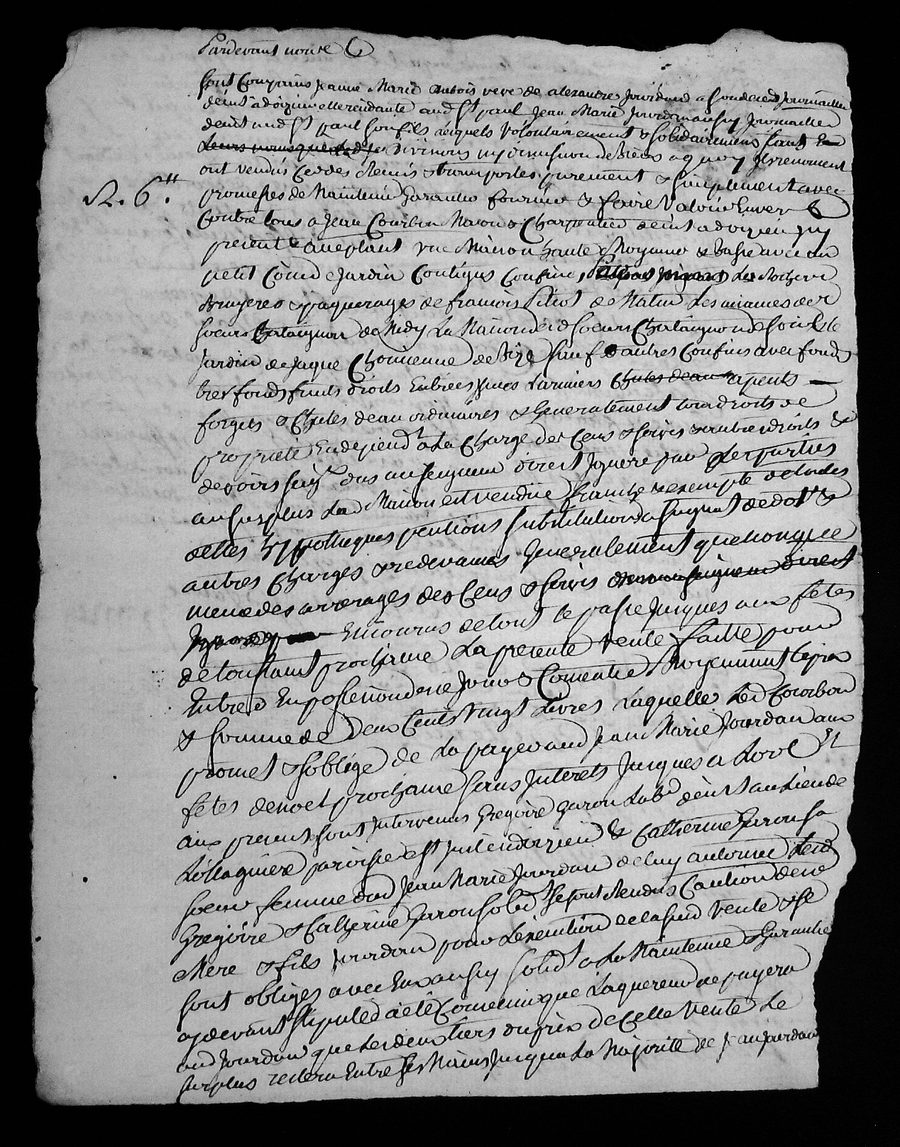 Pardevant nore
sont Comparus Jeanne Marie dubois veve de alexandre Jourdan
deint adoizieu et rendante aud st paul Jean Marie Jourdan aussy Journaille
deint aud st paul son fils lesquels volontairement & solidairement sans
division ny discussion de Biens a quoy Ils renoncent
R. 6"
ont vendus Cedes Remis & transportes purement & simplement avec
promesses de Maintenir Garantir fournir & faire Valoir Envers &
Contre tous a Jean Courbon Masson & Charpentier deint adoizieu icy
present & aceptant une Maison haute Moyenne & Basse avec un
petit Coin de Jardin Contigus Confine
bruyeres & paquerages de francois de Matin
soeurs Chataignon de Midy La Maison desd soeurs Chataignon de soir & le
Jardin de Jaque Chorienne de Bize sauf dautres Confins avec fonds
tres fonds fruits droits Entrées yssues Larmiers Chutes deau apents
forgets & Chutes deau ordinaires & Generalement tous droits de
propriete En dependt a La Charge des Cens & servis & autres droits &
devoirs seigx dus au seigneur direct Ignoré par Les parties
au surplus Lad Maison est vendue franche & exempte de toutes
dettes hypotheques pentions substitutions assignat de dot &
autres Charges & redevances Generalement quelconques
meme des arrerages des Cens & servis du seigneur direct
Encourus de tout le passe Jusques aux fetes
de toussaint prochaine La presente vente faitte pour
Entrer En possession de ce Jour & Moyennant le prix
& somme de Deux Cents Vingt Livres Laquelle Led Courbon
promet & soblige de La payer aud Jean Marie Jourdan aux
fetes de noel prochaine sans Interets Jusques a Lors Et
aux presentes sont Intervenus Gregoire Garon Labr deint au Lieu de
Lollagniere paroisse & Catherine Garon sa
soeur femme dud Jean Marie Jourdan de luy autorisée Lesd
Gregoire & Catherine Garon solidt se sont Rendus Caution desd
Mere & fils Jourdan pour Lexecution de lasud Vente & se
sont obliges avec Eux aussy solidt a La Maintenue & Garantie
cydevant stipulée a été Convenu que Laquereur ne payera
aud Jourdan que Les deux tiers du prix de Cette Vente Le
surplus restera Entre ses Mains Jusqua La Majorité de Jean Jourdan